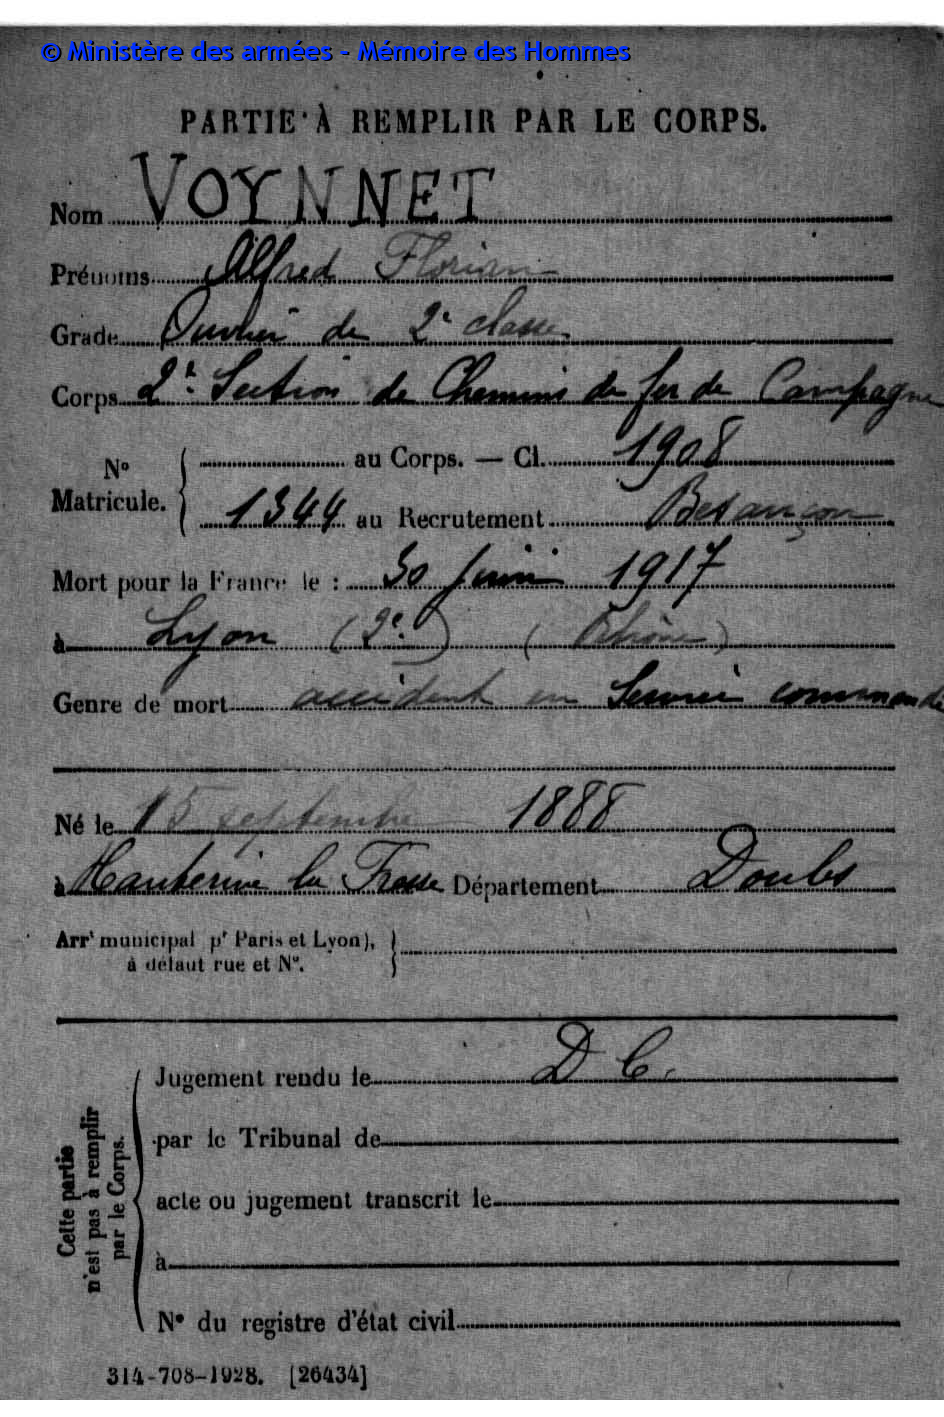 © Ministère des armées - Mémoire des Hommes
PARTIE À REMPLIR PAR LE CORPS.
Nom VOYNNET
Prénoms Alfred Florian
Grade Ouvrier de 2e classe
Corps 2e Section de Chemins de fer de Campagne
No Matricule. { au Corps. — Cl. 1908
1344 au Recrutement Besançon
Mort pour la France le : 30 juin 1917
à Lyon (2e) (Rhône)
Genre de mort accident en Service commandé
Né le 15 septembre 1888
à Hauterive la Fresse Département Doubs
Arrt municipal pr Paris et Lyon), à défaut rue et No. }
Cette partie n'est pas à remplir par le Corps.
Jugement rendu le D C.
par le Tribunal de
acte ou jugement transcrit le
à
No du registre d'état civil
314-708-1928. [26434]